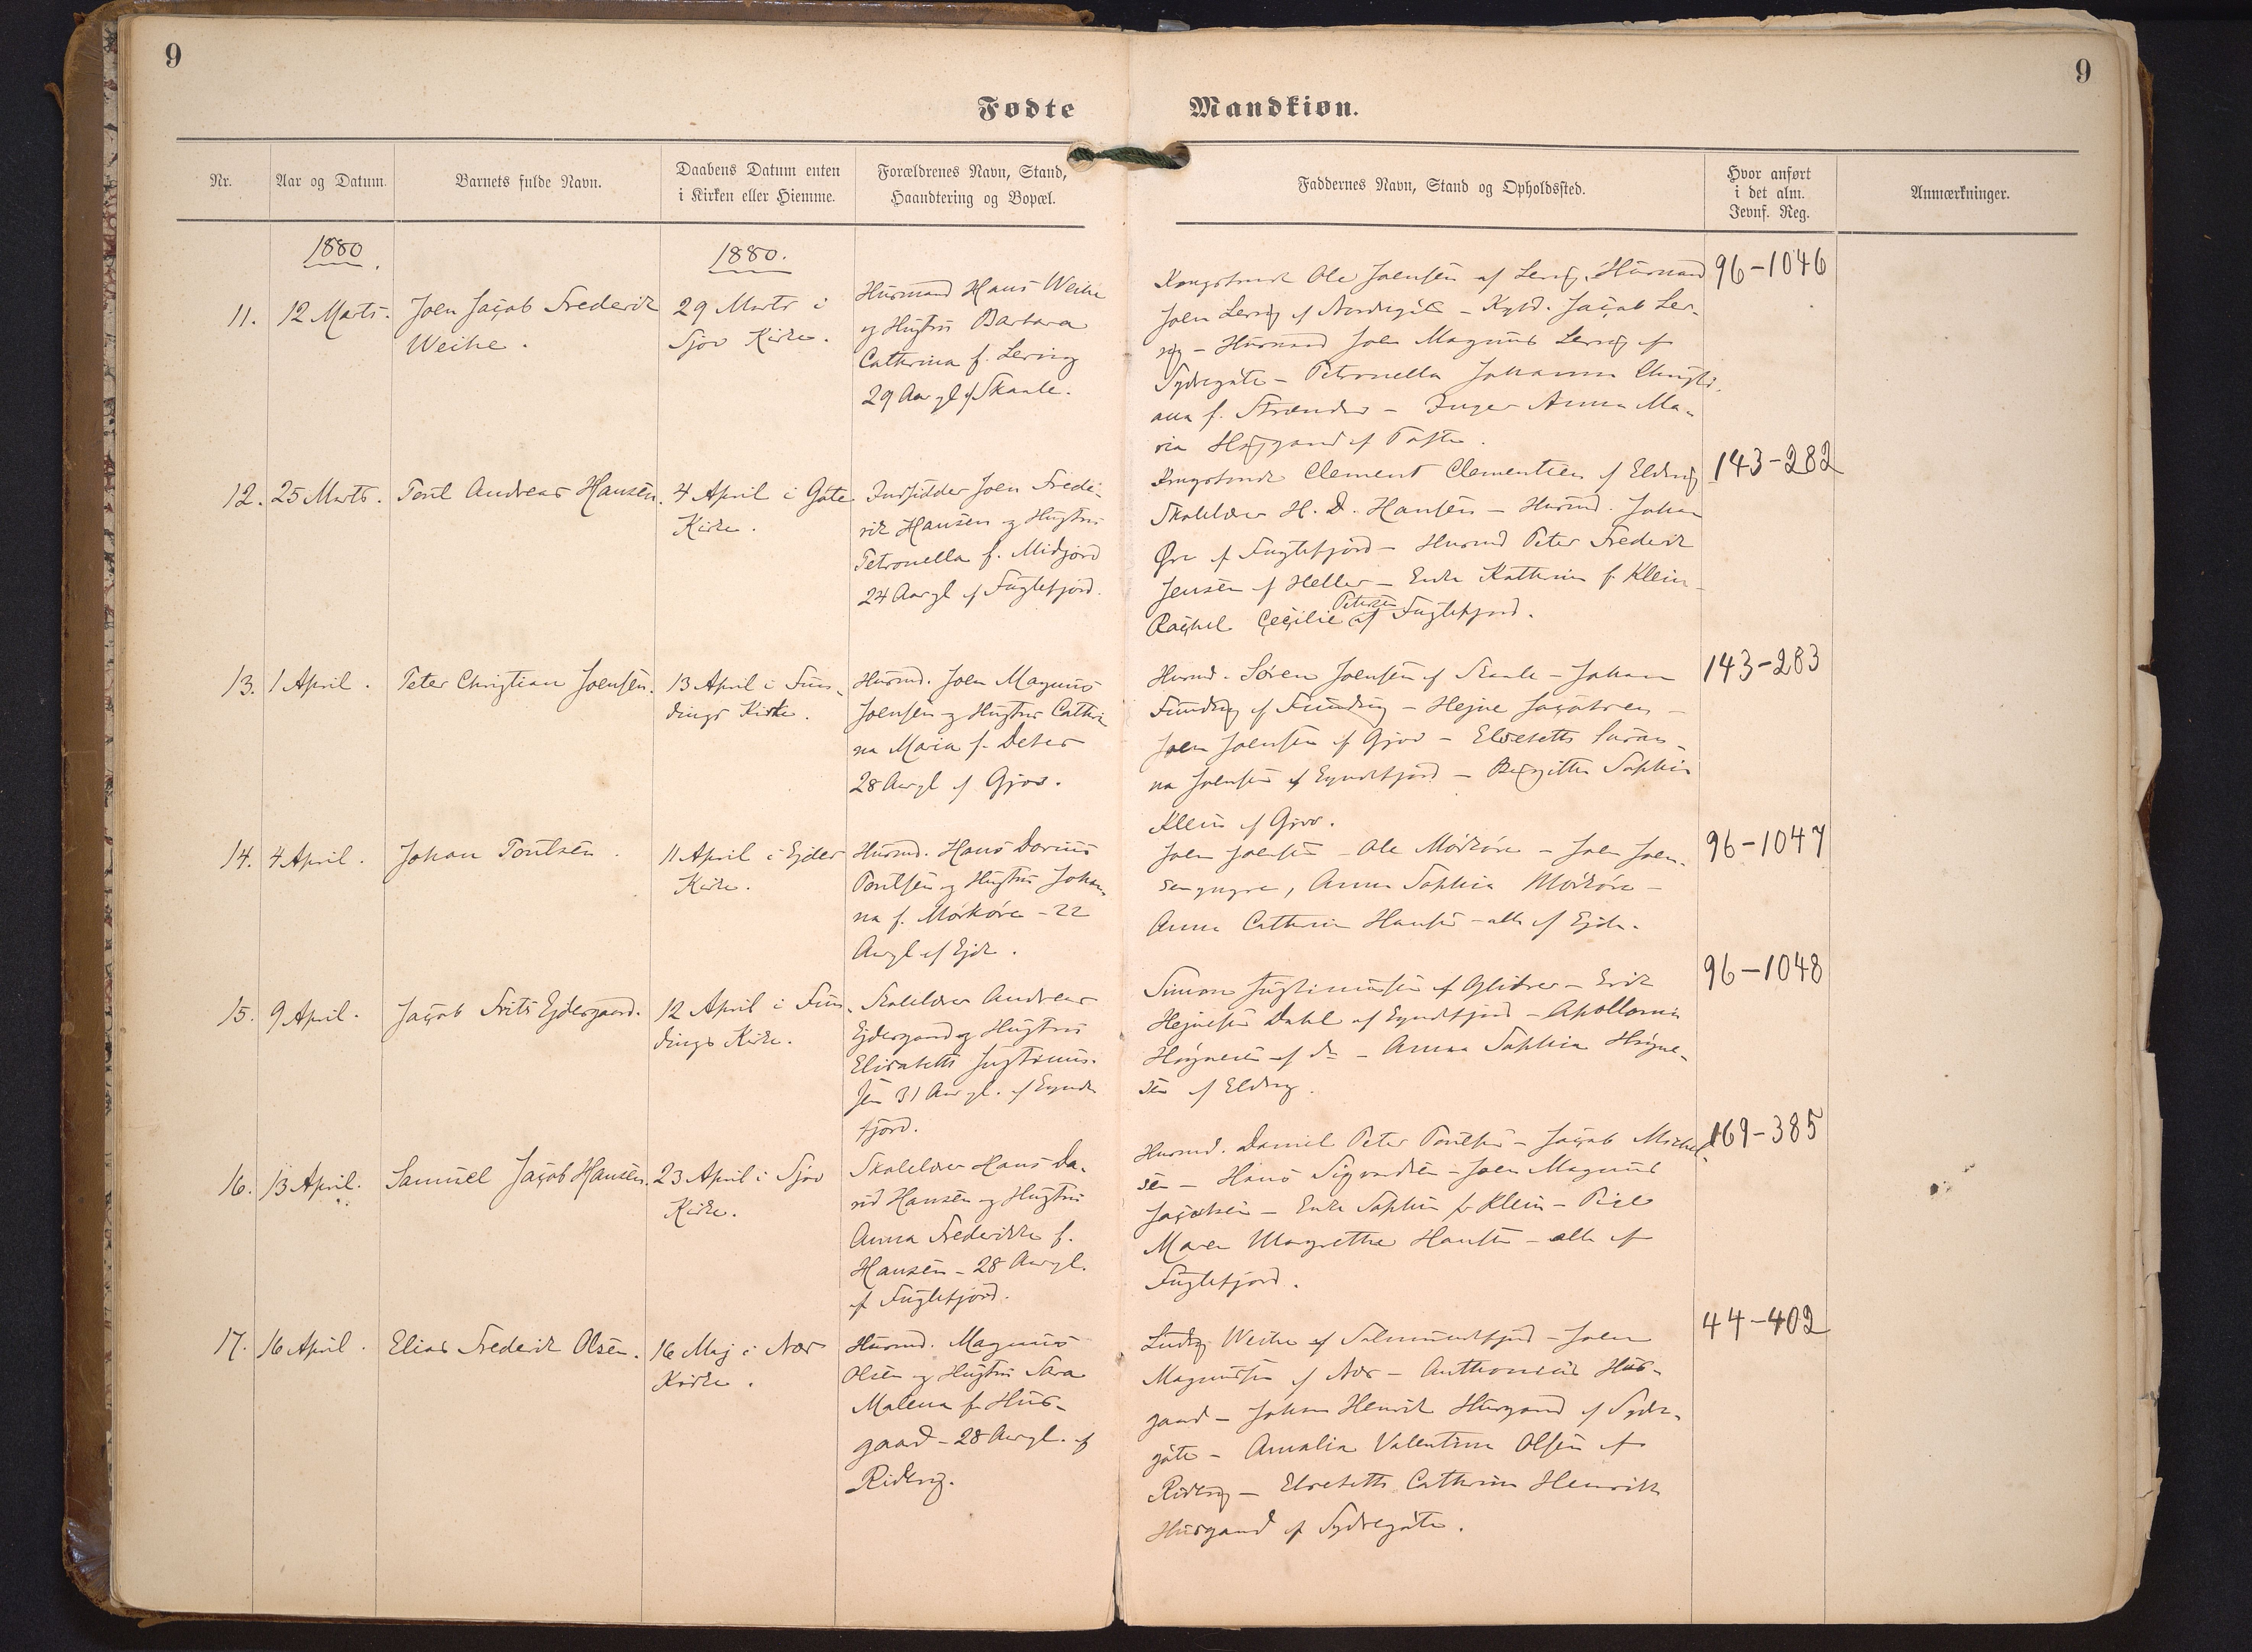 9
9
Fødte
Mandkiøn.
Nr.
Aar og Datum.
Barnets fulde Navn.
Daabens Datum enten
i Kirken eller Hiemme.
Forældrenes Navn, Stand,
Haandtering og Bopæl.
Faddernes Navn, Stand og Opholdssted.
Hvor anført
i det alm.
Jevnf. Reg.
Anmærkninger.
1880.
1880.
11.
12 Marts.
Joen Jacob Frederik
Weihe.
29 Marts i
Sjov Kirke.
Husmand Hans Weihe
og Hustru Barbara
Cathrina f. Lervig
29 Aar gl af Skaale.
Kongsbonde Ole Joensen af Lervig, Husmand
Joen Lervig af Nordregøte – Jacob Ler-
vig – Husmand Joen Magnus Lervig af
Sydregøte – Petronella Johanna Christi-
ana f. Strender – Inger Anna Ma-
ria af Tofte.
96-1046
12.
25 Marts.
Poul Andreas Hansen.
4 April i Gøte
Kirke.
Indsidder Joen Frede-
rik Hansen og Hustru
Petronella f. Midjord
24 Aar gl af Fuglefjord.
Kongsbonde Clement Clementsen af Eldevig
Skolelærer H. D. Hansen – Husmd. Johan
Øre af Fuglefjord – Husmd Peter Frederik
Jensen af Heller – Enke Kathrina f. Klein –
Petersen
Rachel Cecilie af Fuglefjord.
143-282
13.
1 April.
Peter Christian Joensen.
13 April i Fun-
dings Kirke.
Husmd. Joen Magnus
Joensen og Hustru Cathri
na Maria f. Debes
28 Aar gl af Gjov.
Husmd. Søren Joensen af Skaale – Johan
Funding af Funding – Hejne Jacobsen –
Joen Joensen af Gjov – Elsebeth Susan-
na Joensen af Eyndefjord – Birgitte Sophia
Klein af Gjov.
143-283
14.
4 April.
Johan Poulsen.
11 April i Ejder
Kirke.
Husmd. Hans Darius
Poulsen og Hustru Johan-
na f. Mørkøre – 22
Aar gl af Ejde.
Joen Joensen – Ole Mørkøre – Joen Joen-
sen yngre, Anna Sophia Mørkøre –
Anna Cathrina Hansen – alle af Ejde.
96-1047
15.
9 April.
Jacob Frits Ejdesgaard.
12 April i Fun-
dings Kirke.
Skolelærer Andreas
Ejdesgaard og Hustru
Elisabeth Justinus-
sen 31 Aar gl. af Eynde
fjord.
Simon Justinussen af Glibre – Erik
Hejnesen Dahl af Eyndefjord – Apollonia
Høgnesen af do – Anna Sophia Høgne-
sen af Eldevig.
96-1048
16.
13 April.
Samuel Jacob Hansen.
23 April i Sjov
Kirke.
Skolelærer Hans Da-
vid Hansen og Hustru
Anna Frederikke f.
Hansen – 28 Aar gl.
af Fuglefjord.
Husmd. Daniel Peter Poulsen – Jacob Michel-
sen – Hans Sigvardsen – Joen Magnus
Jacobsen – Enke Sophia f. Klein – Pige
Maren Margretha Hansen – alle af
Fuglefjord.
169-385
17.
16 April.
Elias Frederik Olsen.
16 Maj i Næs
Kirke.
Husmd. Magnus
Olsen og Hustru Sara
Malena f. Hus-
gaard – 28 Aar gl. af
Ridevig.
Ludvig Weihe af Salmundefjord – Joen
Magnussen af Næs – Anthonius Hus-
gaard – Johan Henrik Husgaard af Sydre-
gøte – Amalia Valentina Olsen af
Ridevig – Elsebeth Cathrina Henrikke
Husgaard af Sydregøte.
44-402